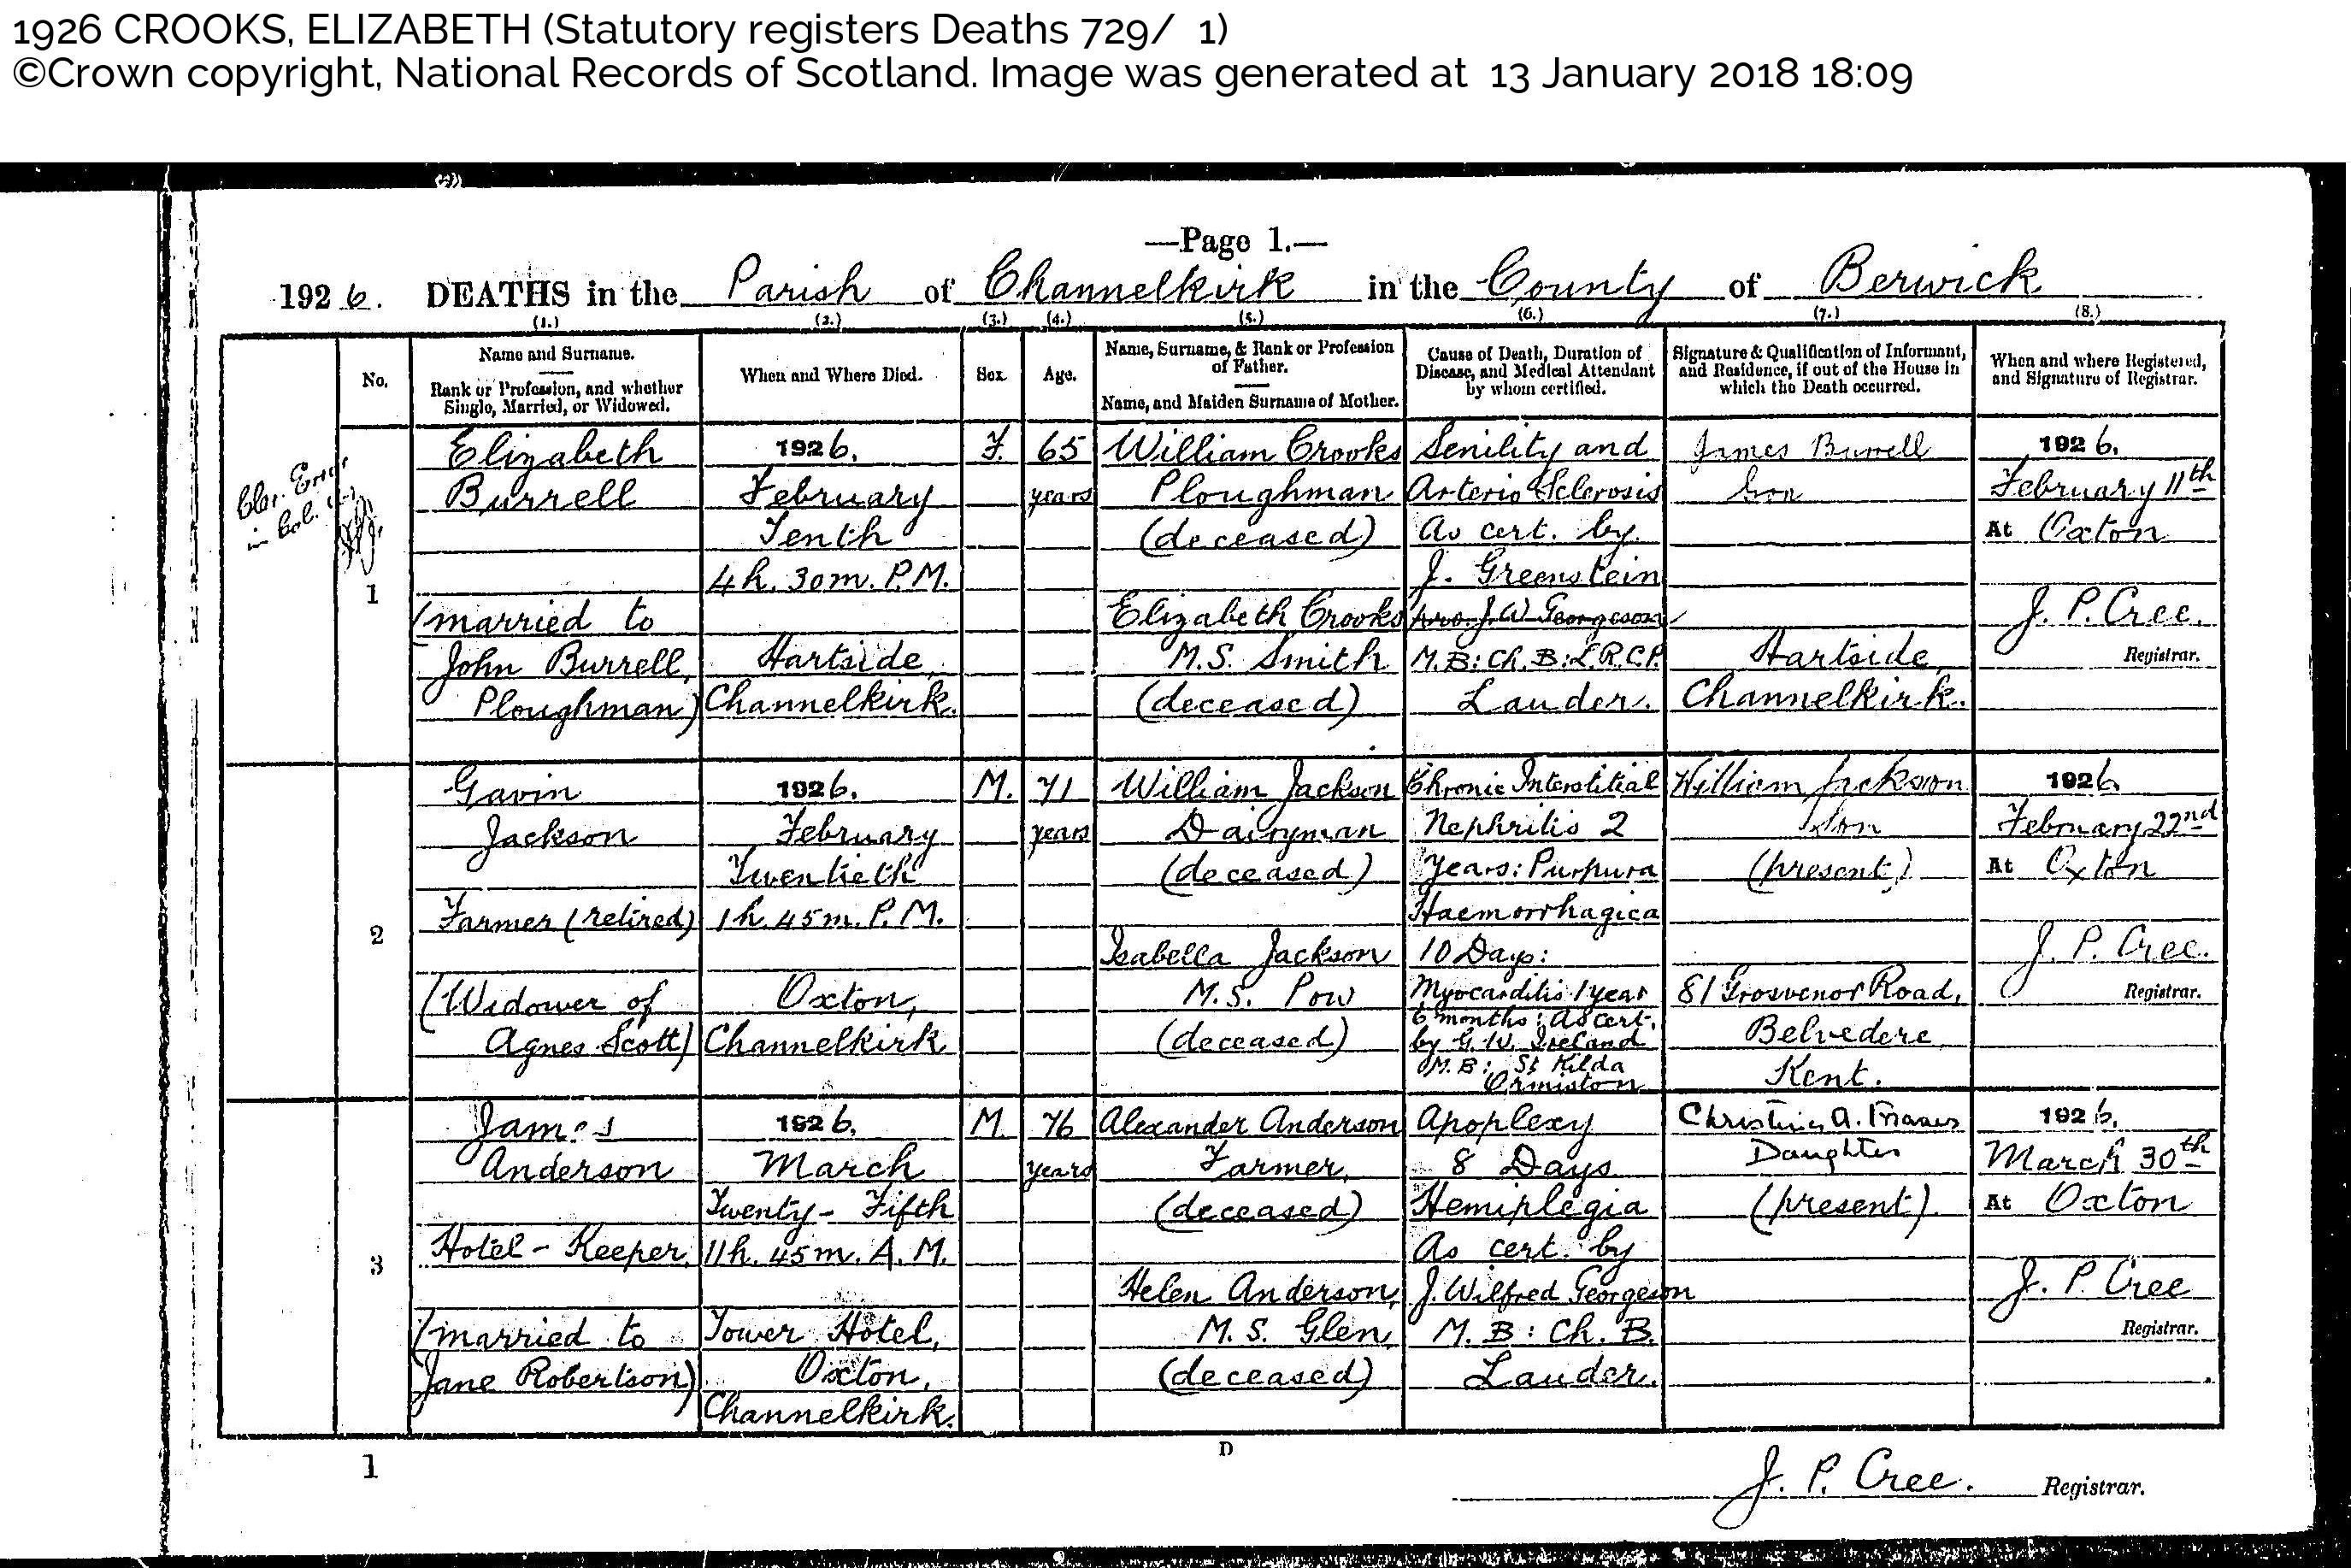 1926 CROOKS, ELIZABETH (Statutory registers Deaths 729/ 1)
©Crown copyright, National Records of Scotland. Image was generated at 13 January 2018 18:09
—Page 1.—
1926. DEATHS in the Parish of Channelkirk in the County of Berwick
(1.) (2.) (3.) (4.) (5.) (6.) (7.) (8.)
No.
Name and Surname.
Rank or Profession, and whether
Single, Married, or Widowed.
When and Where Died.
Sex.
Age.
Name, Surname, & Rank or Profession
of Father.
Name, and Maiden Surname of Mother.
Cause of Death, Duration of
Disease, and Medical Attendant
by whom certified.
Signature & Qualification of Informant,
and Residence, if out of the House in
which the Death occurred.
When and where Registered,
and Signature of Registrar.
Cler. Error
in Col.
1
Elizabeth
Burrell
(married to
John Burrell,
Ploughman)
1926.
February
Tenth
4h. 30m. P.M.
Hartside,
Channelkirk.
F.
65
years
William Crooks
Ploughman
(deceased)
Elizabeth Crooks
M.S. Smith
(deceased)
Senility and
Arterio Sclerosis
As cert. by
J. Greenstein
pro. J. W. Georgeson
M.B: Ch. B: L.R.C.P.
Lauder.
James Burrell
Son
Hartside,
Channelkirk.
1926.
February 11th
At Oxton
J. P. Cree.
Registrar.
2
Gavin
Jackson
Farmer (retired)
(Widower of
Agnes Scott)
1926.
February
Twentieth
1h. 45m. P.M.
Oxton,
Channelkirk
M.
71
years
William Jackson
Dairyman
(deceased)
Isabella Jackson
M.S. Pow
(deceased)
Chronic Interstitial
Nephritis 2
Years: Purpura
Haemorrhagica
10 Days:
Myocarditis 1 year
6 months: As cert.
by G. W. Ireland
M.B: St Kilda
Ormiston
William Jackson
Son
(present)
81 Grosvenor Road,
Belvedere
Kent.
1926
February 22nd
At Oxton
J. P. Cree.
Registrar.
3
James
Anderson
Hotel-Keeper.
(married to
Jane Robertson)
1926.
March
Twenty-Fifth
11h. 45m. A.M.
Tower Hotel,
Oxton,
Channelkirk.
M.
76
years
Alexander Anderson
Farmer,
(deceased)
Helen Anderson,
M.S. Glen,
(deceased)
Apoplexy
8 Days
Hemiplegia
As cert. by
J. Wilfred Georgeson
M.B: Ch. B.
Lauder.
Christina A. Fraser
Daughter
(present)
1926.
March 30th
At Oxton
J. P. Cree
Registrar.
1
D
J. P. Cree. Registrar.